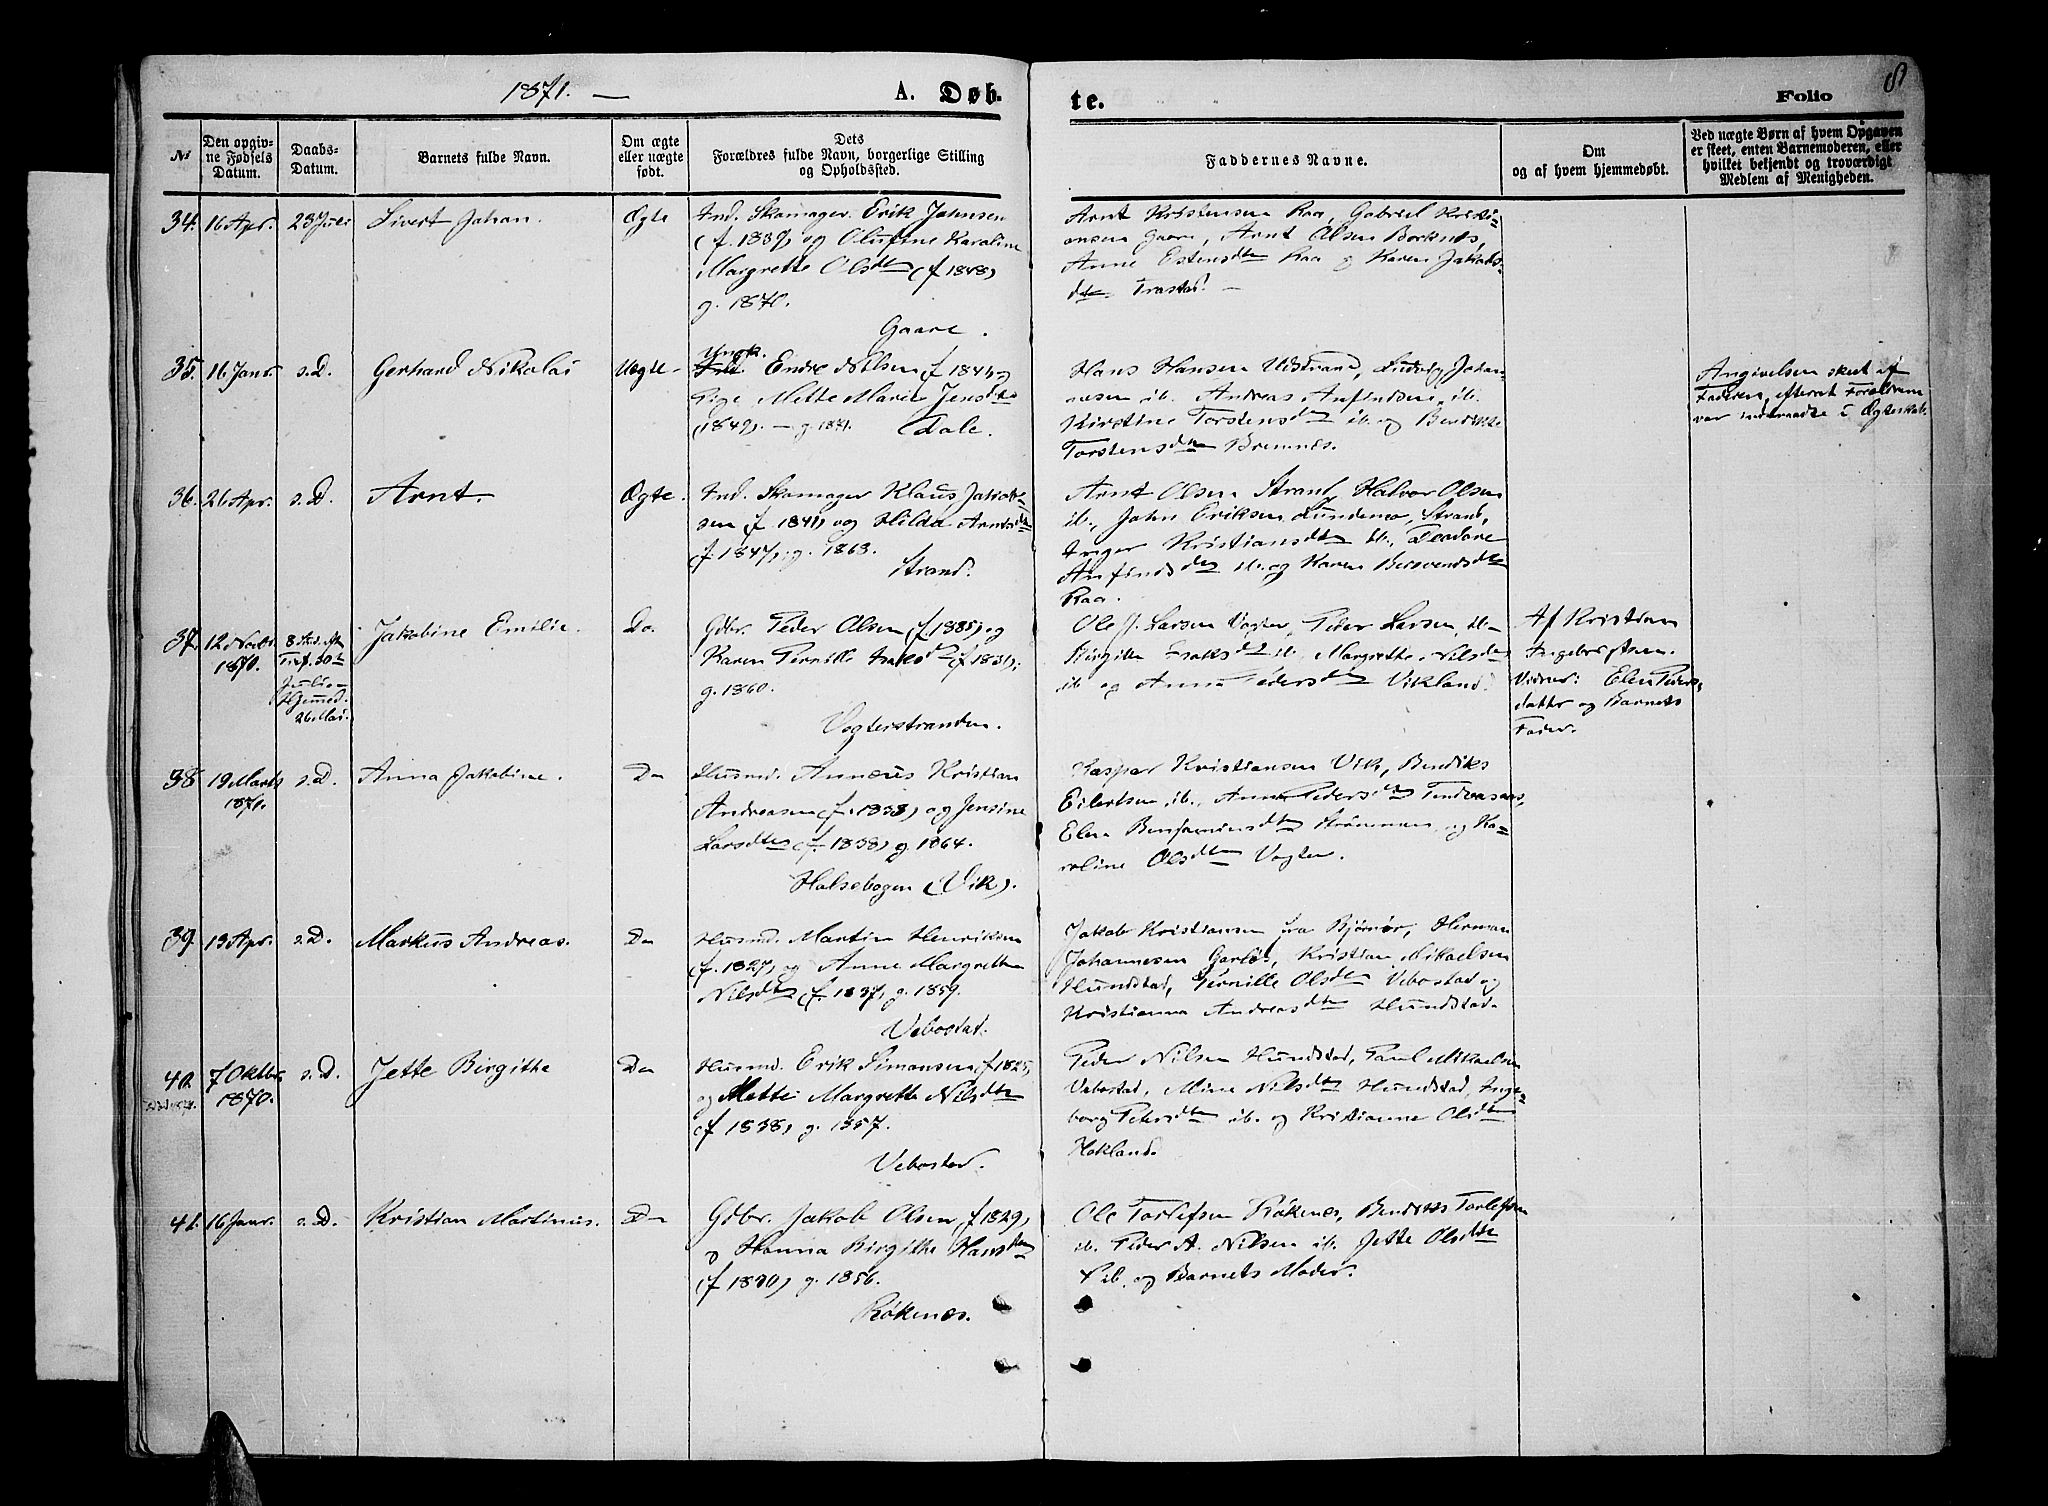 1871. —
A. Døb-
te.
Folio
8
No
Den opgiv-
ne Fødsels
Datum.
Daabs-
Datum.
Barnets fulde Navn.
Om ægte
eller uægte
født.
Dets
Forældres fulde Navn, borgerlige Stilling
og Opholdssted.
Faddernes Navne.
Om
og af hvem hjemmedøbt.
Ved uægte Børn af hvem Opgaven
er skeet, enten Barnemoderen, eller
hvilket bekjendt og troværdigt
Medlem af Menigheden.
34. 16 Apr. 23 Juli Sivert Johan. Ægte
Ind. Skomager Erik Johnsen
(f. 1839) og Olufine Karoline
Margrethe Olsdtr (f. 1848)
g. 1870.
Gaare.
Arnt Kristensen Raa, Gabriel Kristi-
ansen Gaare, Arnt Olsen Borknes,
Anne Estensdtr Raa og Karen Jakobs-
dtr Trastad. —
35. 16 Janr. s.D. Gerhard Nikolai Uægte
Ungk. Endre Nilsen (f. 1846) og
Pige Mette Marie Jensdtr
(1849). — g. 1871. Dale.
Hans Hansen Udstrand, Ludvig Johan-
nesen ib. Andreas Anfindsen, ib.
Kirstine Torstensdtr ib. og Bendikte
Torstensdtr Bremnes.
Angivelsen skeet af
Faderen, efterat Forældrene
var indtraadte i Ægteskab.
36. 26 Apr. s.D. Arnt. Ægte.
Ind. Skomager Klaus Jakob-
sen (f. 1841) og Hilda Arntsdtr
(f. 1847), g. 1868.
Strand.
Arnt Olsen Strand, Halvor Olsen
ib., John Eriksen Lundemo, Strand,
Inger Kristiansdtr ib., Teodore
Anfindsdtr ib. og Karen Bersvendsdtr
Raa.
37. 12 Novbr.
1870.
8 Sød. eft
Tref. 30te
Juli —
Hjemmed.
26 Mai.
Jakobine Emilie. Do.
Gdbr. Peder Olsen (f. 1835) og
Karen Pernille Isaksdtr (f. 1831),
g. 1860.
Vogterstranden.
Ole J. Larsen Vogter, Peder Larsen, ib.
Birgitte Isaksdtr ib. Margrethe Nilsdtr
ib. og Anna Pedersdtr Vikland.
Af Kristian
Ingebrigtsen.
Vidner: Elen Peders-
datter og Barnets
Fader.
38 19 Marts
1871.
s.D. Anna Jakobine. Do
Husmd. Annæus Kristian
Andreasen (f. 1838) og Jensine
Larsdtr (f. 1838) g. 1864.
Halsebogen (Vik).
Kaspar Kristiansen Vik, Bendiks
Eilertsen ib., Anna Pedersdtr
Elen Benjaminsdtr og Ka-
roline Olsdtr Vogter.
39. 13 Apr. s.D. Markus Andreas. Do
Husmd. Martin Henriksen
(f. 1827) og Anne Margrethe
Nilsdtr (f. 1837), g. 1859.
Vebostad.
Jakob Kristiansen fra Bjørnør, Herman
Johannesen Garlös, Kristian Mikaelsen
Hundstad, Pernille Olsdtr Vebostad og
Kristianna Andreasdtr Hundstad.
40. 7 Oktbr.
1870.
s.D. Jette Birgithe Do
Husmd. Erik Simonsen (f. 1825)
og Mette Margrethe Nilsdtr
(f. 1838), g. 1857.
Vebostad.
Peder Nilsen Hundstad, Paul Mikaelsen
Vebostad, Mine Nilsdtr Hundstad, Inge-
borg Pedersdtr ib. og Kristianne Olsdtr
Hokland.
41. 16 Janr. s.D. Kristian Martinus. Do
Gdbr. Jakob Olsen (f. 1829)
og Hanna Birgithe Hansdtr
(f. 1830) g. 1856.
Rökenes.
Ole Torlefsen Rökenes, Bendiks Torlefsen
ib. Peder A. Nilsen ib. Jette Olsdtr
ib. og Barnets Moder.